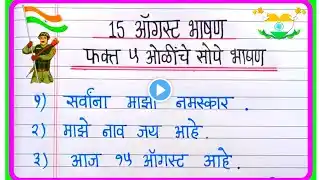 15 ऑगस्ट भाषण
फक्त ५ ओळींचे सोपे भाषण
१) सर्वांना माझा नमस्कार .
२) माझे नाव जय आहे.
३) आज १५ ऑगस्ट आहे .